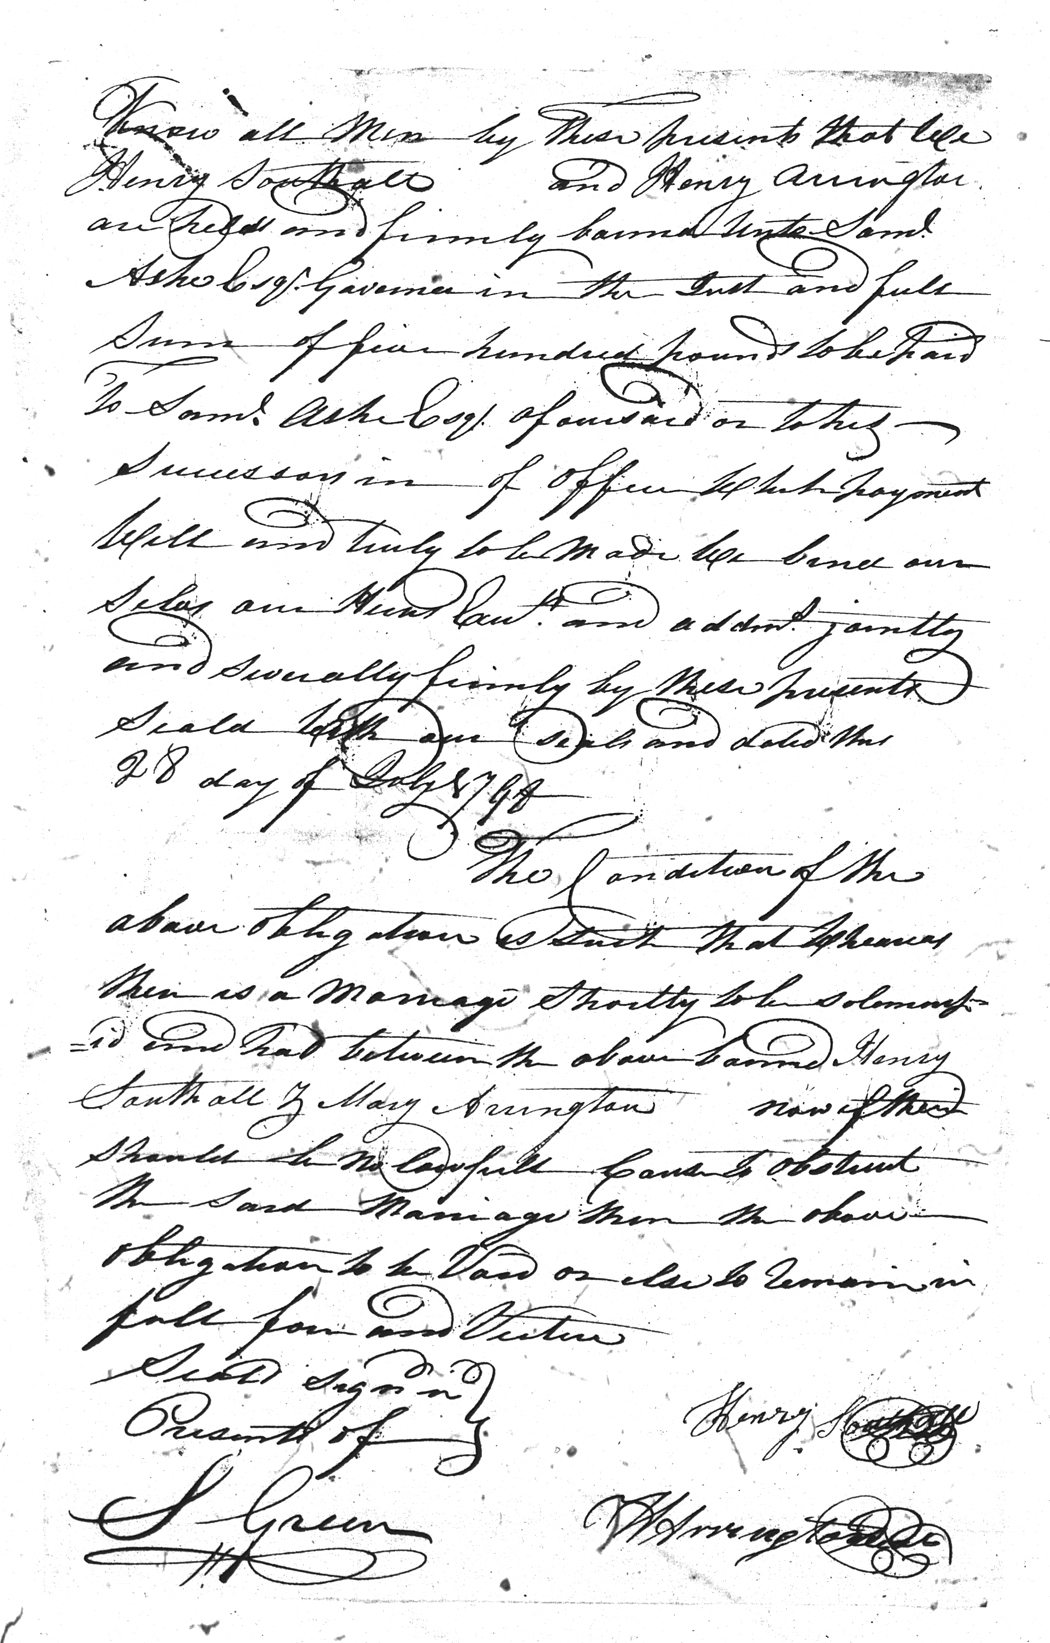 Know all Men by These presents that We
Henry Southall and Henry Arrington
are held and firmly bound Unto Saml.
Ashe Esqr. Governer in the Just and full
Sum of five hundred pounds to be Paid
To Saml. Ashe Esqr. Afouresaid or to his
Successors in of Office Which payment
Well and truly to be Made We bind our
Selvs our Heirs and addms. jointly
and Severally firmly by these presents
Seald With our seals and dated this
28 day of July 1798
The Condition of the
above obligation is Such that Wheareas
their is a Marriage Shortly to be solemnis=
=id and had between the above bound Henry
Southall & Mary Arrington now if their
should be no lawfull Cause to obstruct
the said Marriage then the above
obligation to be Void or else to Remain in
full force and Virtue
Seald signd in
Presents of
Henry Southall
S Green
H Arrington